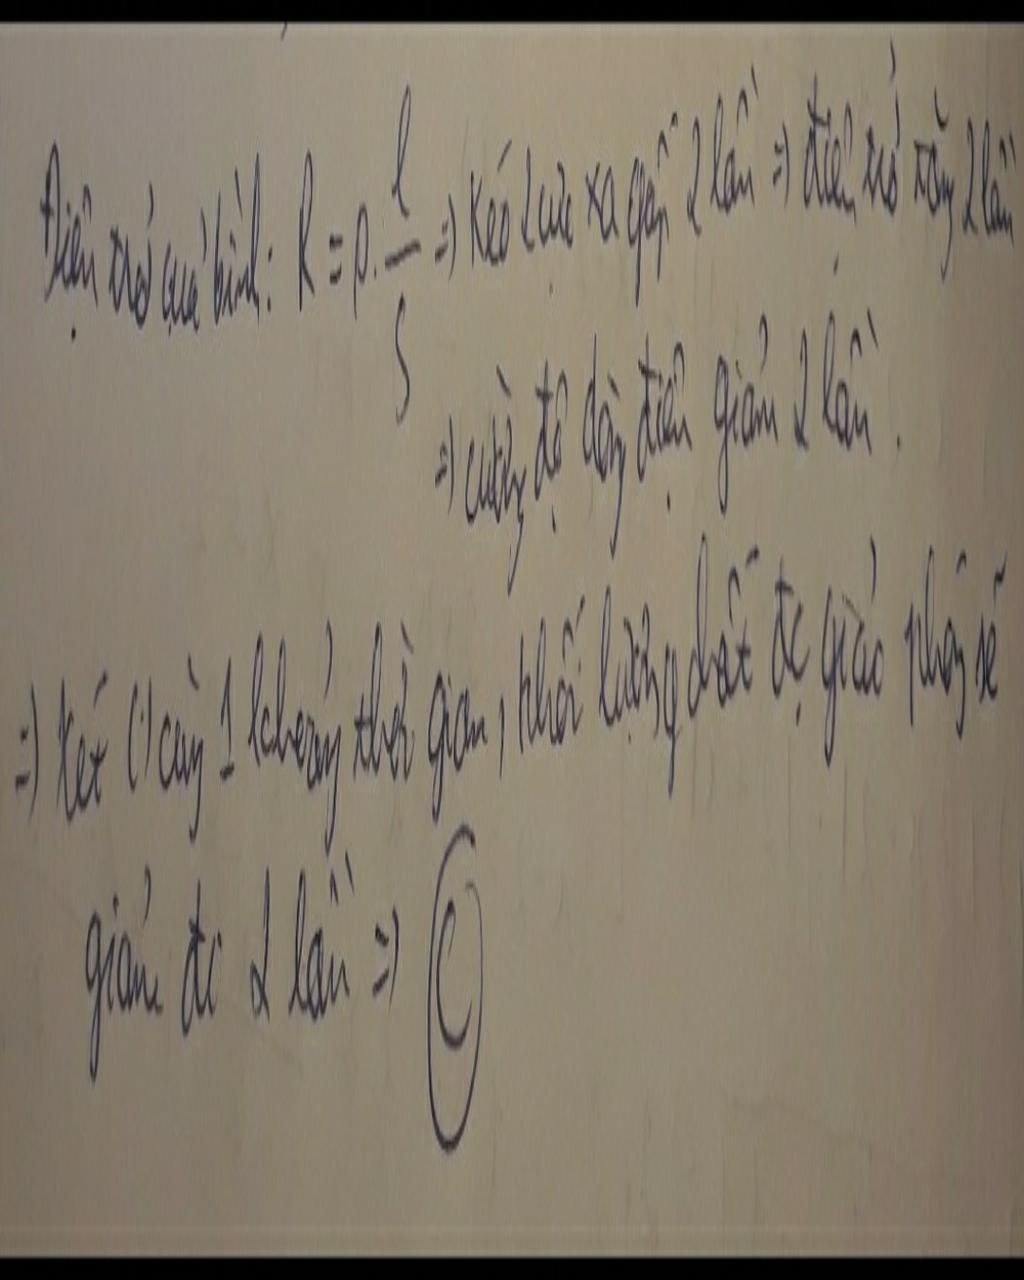 Điện trở của bình: R = ρ. l/S => Kéo 2 cực xa gấp 2 lần => điện trở tăng 2 lần
=> cường độ dòng điện giảm 2 lần.
=> Xét (') cùng 1 khoảng thời gian, khối lượng chất đc giải phóng sẽ
giảm đi 2 lần => C